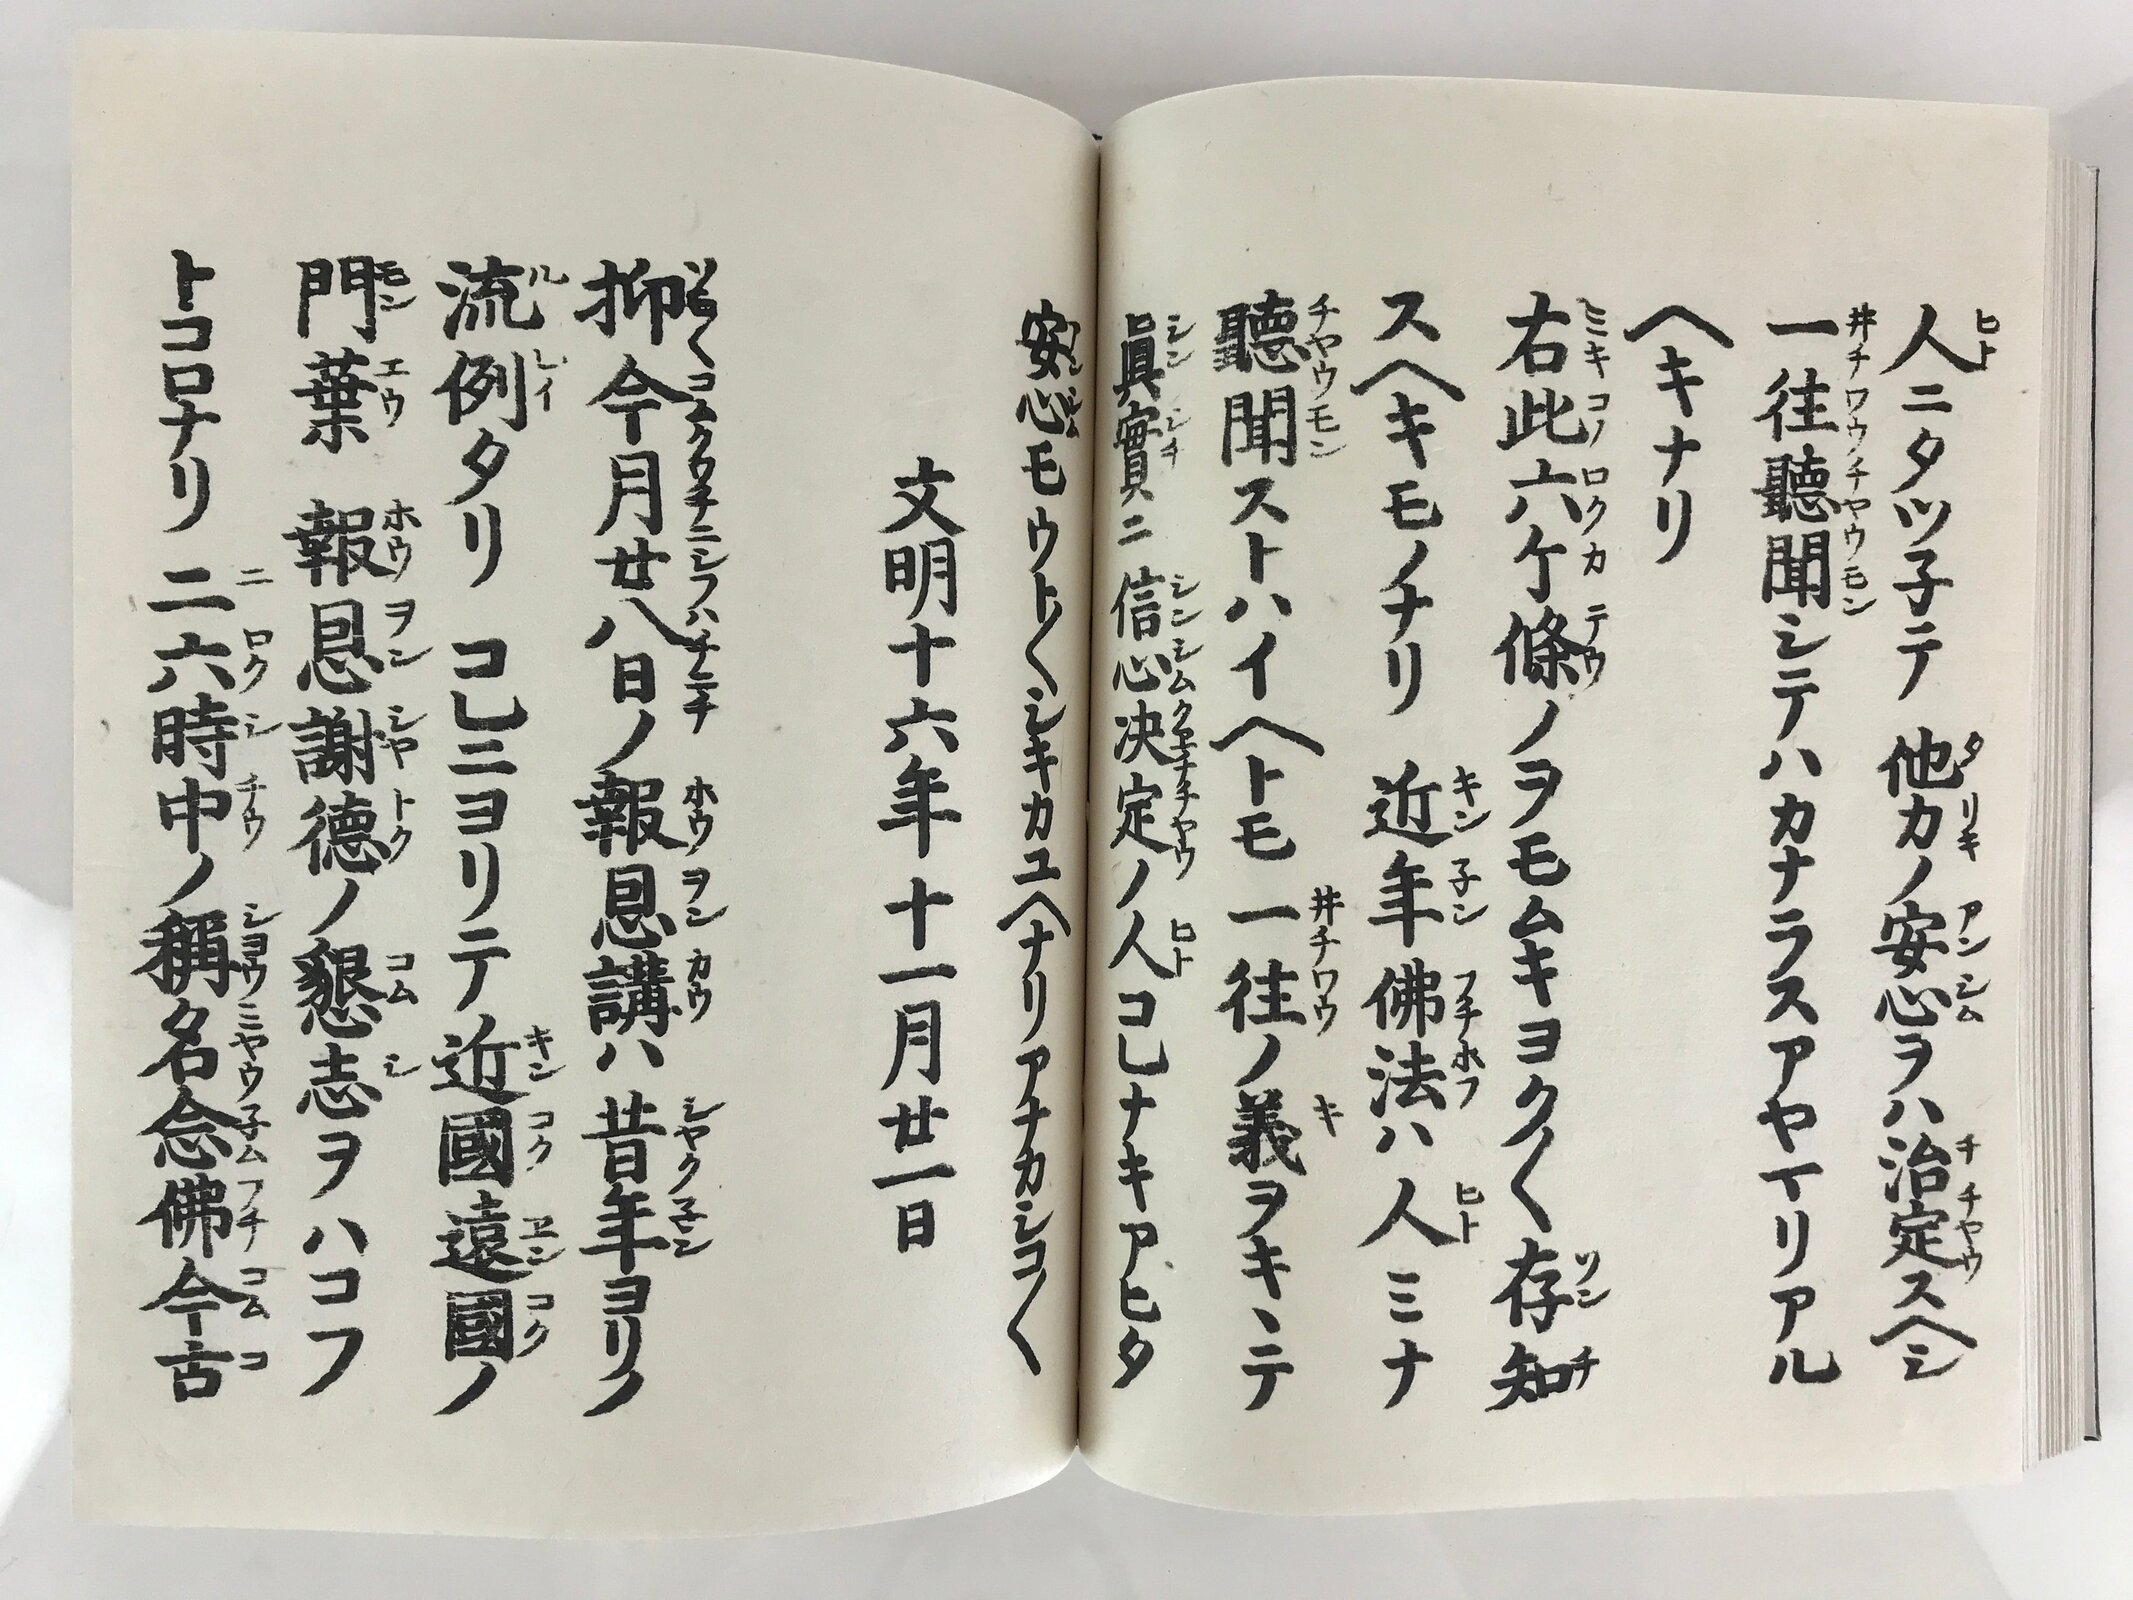 人ニタツ子テ他力ノ安心ヲハ治定スヘシ
一往聽聞シテハカナラスアヤイリアル
ヘキナリ
右此六ケ條ノヲモムキヨク〱存知
スヘキモノナリ近年佛法ハ人ミナ
聽聞ストハイヘトモ一往ノ義ヲキヽテ
眞實ニ信心决定ノ人コレナキアヒタ
安心モウト〱シキカユヘナリアナカシコ〱
文明十六年十一月廿一日
抑今月廿八日ノ報恩講ハ昔年ヨリノ
流例タリコレニヨリテ近國遠國ノ
門葉報恩謝德ノ懇志ヲハコフ
トコロナリ二六時中ノ稱名念佛今古